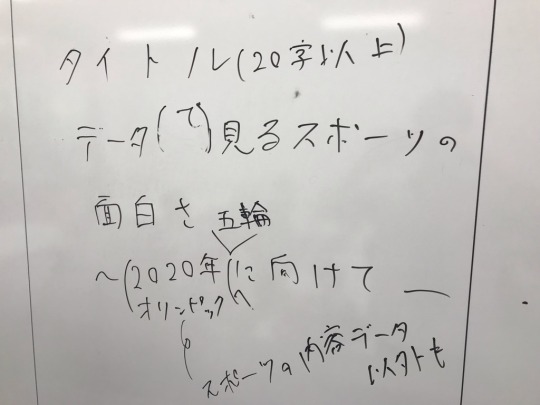 タイトル(20字以上)
データ(で)見るスポーツの
面白さ
五輪
~(2020年(に向けて―
オリンピックへ
の
スポーツの内容データ
以外も